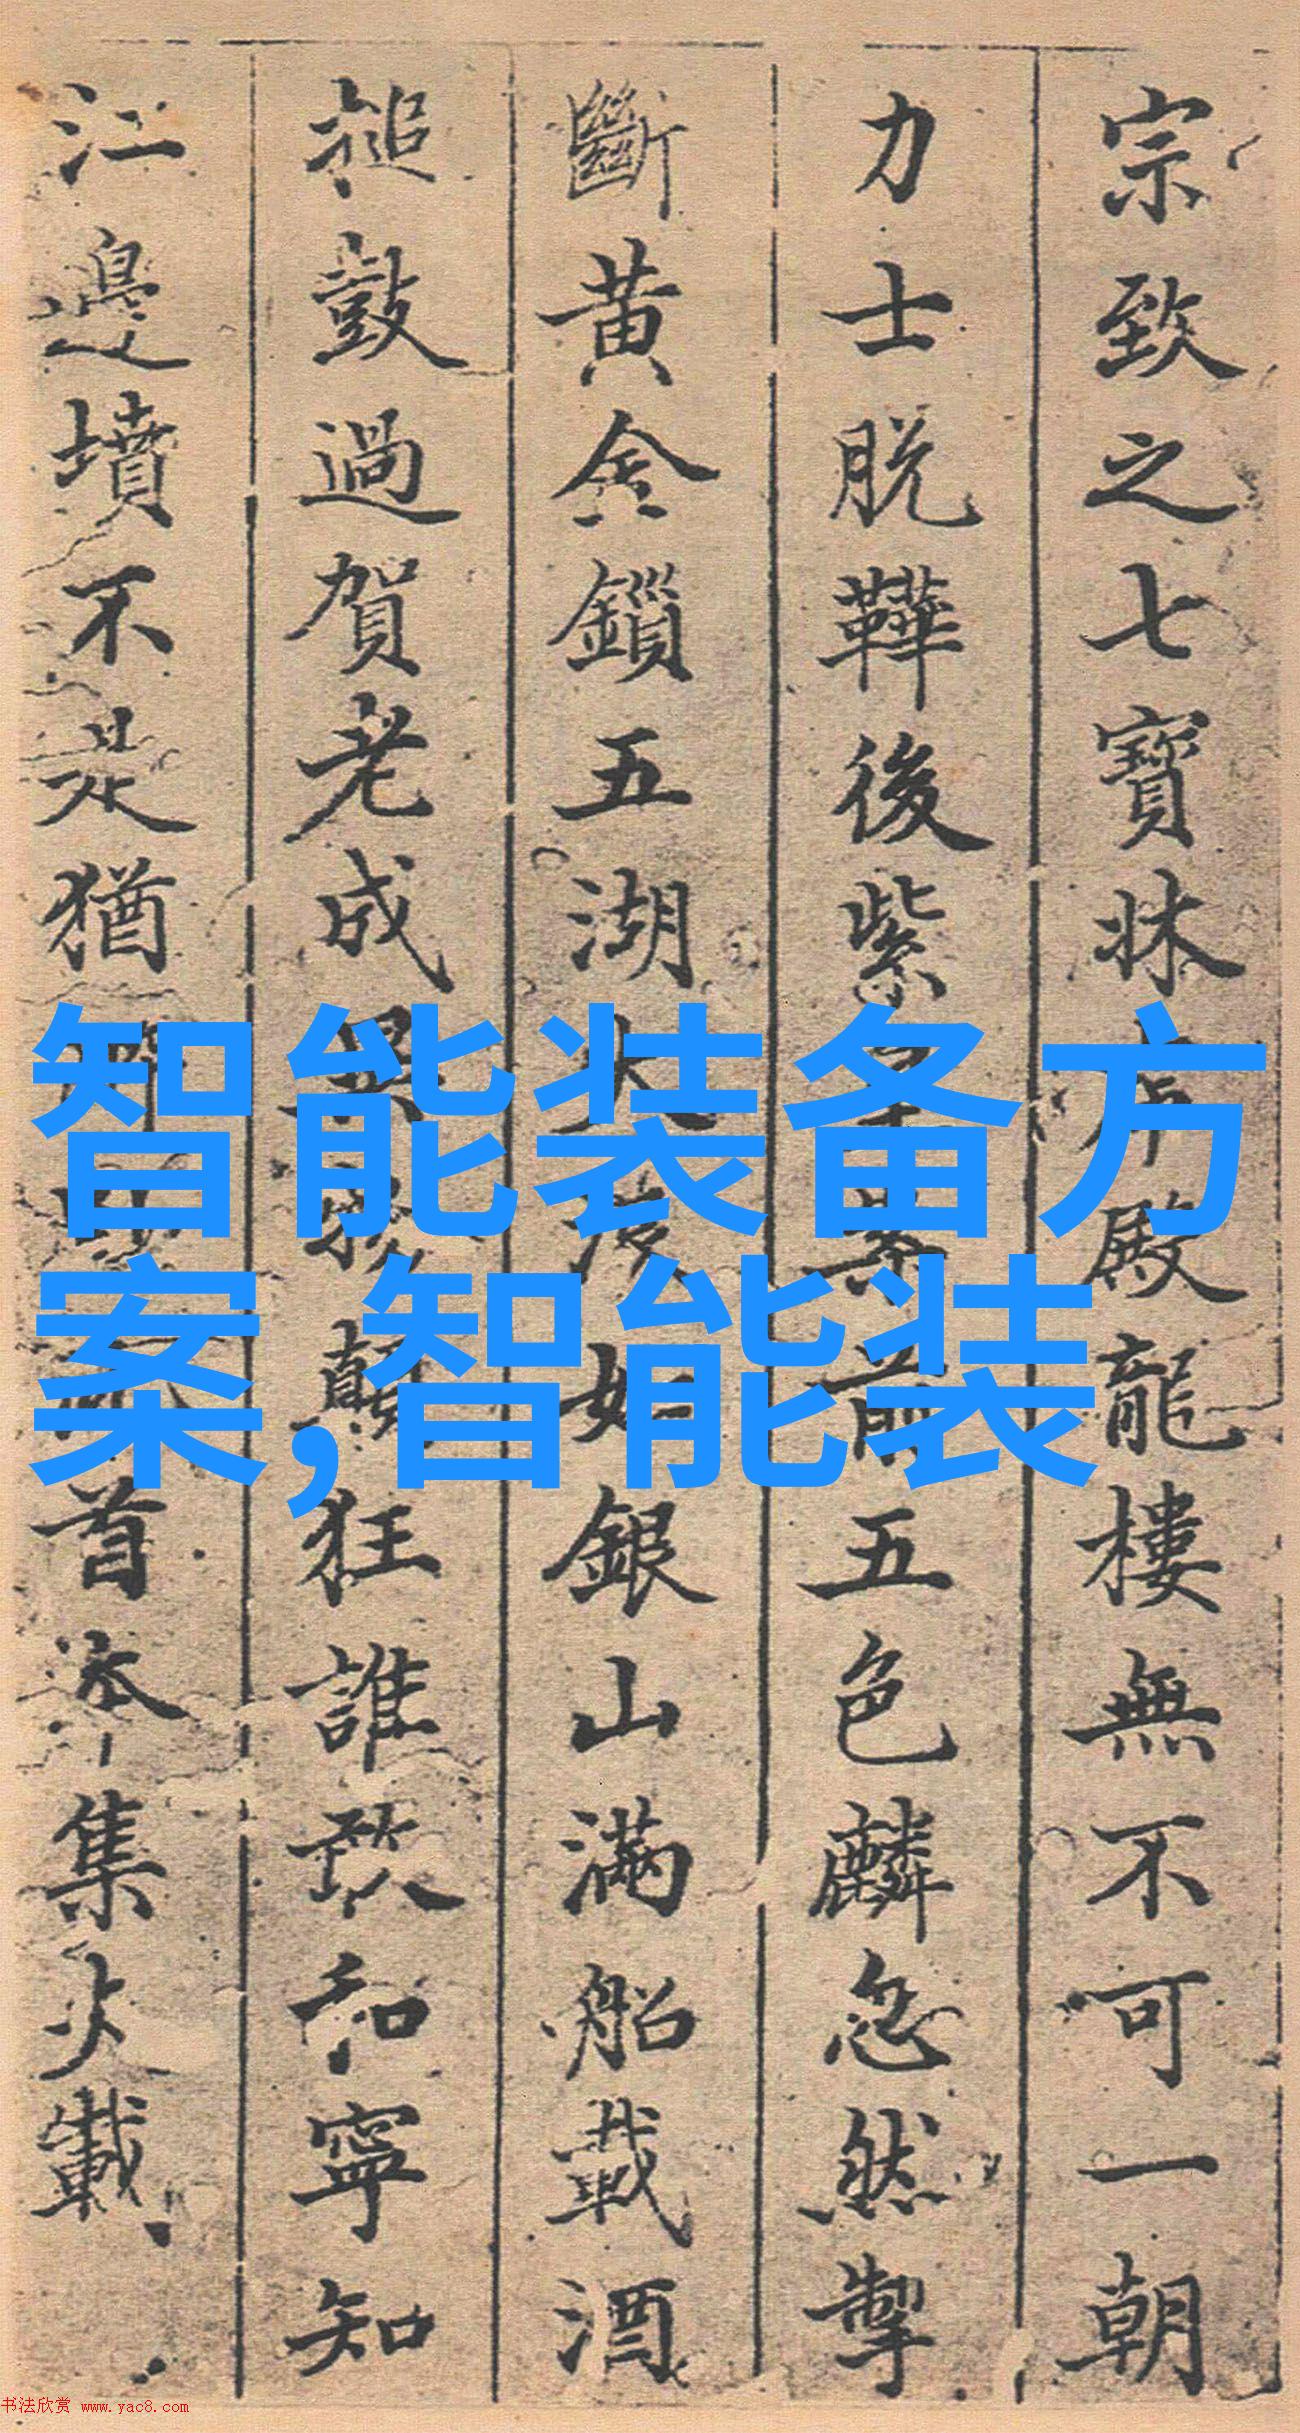 宗致之七寶牀 殿龍樓無不可一朝
力士脱鞾後紫 前五色麟忽然掣
斷黄金鎖五湖 如銀山滿船載酒
搥鼓過賀老成 顛狂誰敢和寧知
江邊墳不是猶 首本集火載
智能装备方
案,智能装
书法欣赏 www.yac8.com